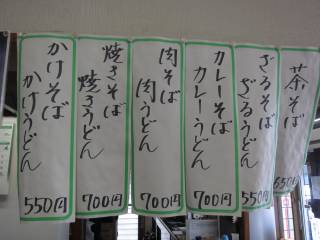 茶そば
650円
ざるそば
ざるうどん
550円
カレーそば
カレーうどん
700円
肉そば
肉うどん
700円
焼きそば
焼きうどん
700円
かけそば
かけうどん
550円